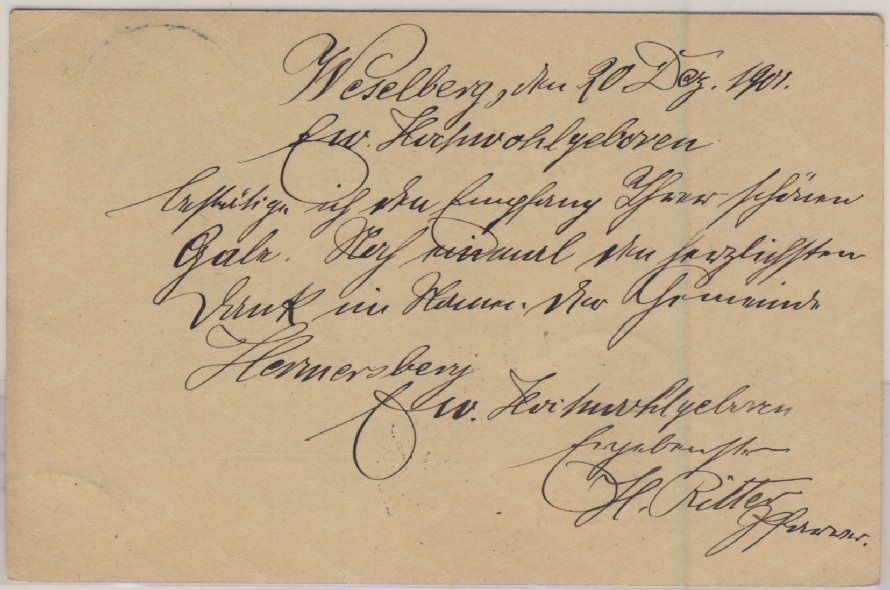 Weselberg, den 20 Dez. 1901.
Ew. Hochwohlgeboren
bestätige ich den Empfang Ihrer schönen
Gabe. Noch einmal den herzlichsten
Dank im Namen der Gemeinde
Hermersberg
Ew. Hochwohlgeboren
Ergebenster
H. Ritter
Pfarrer.